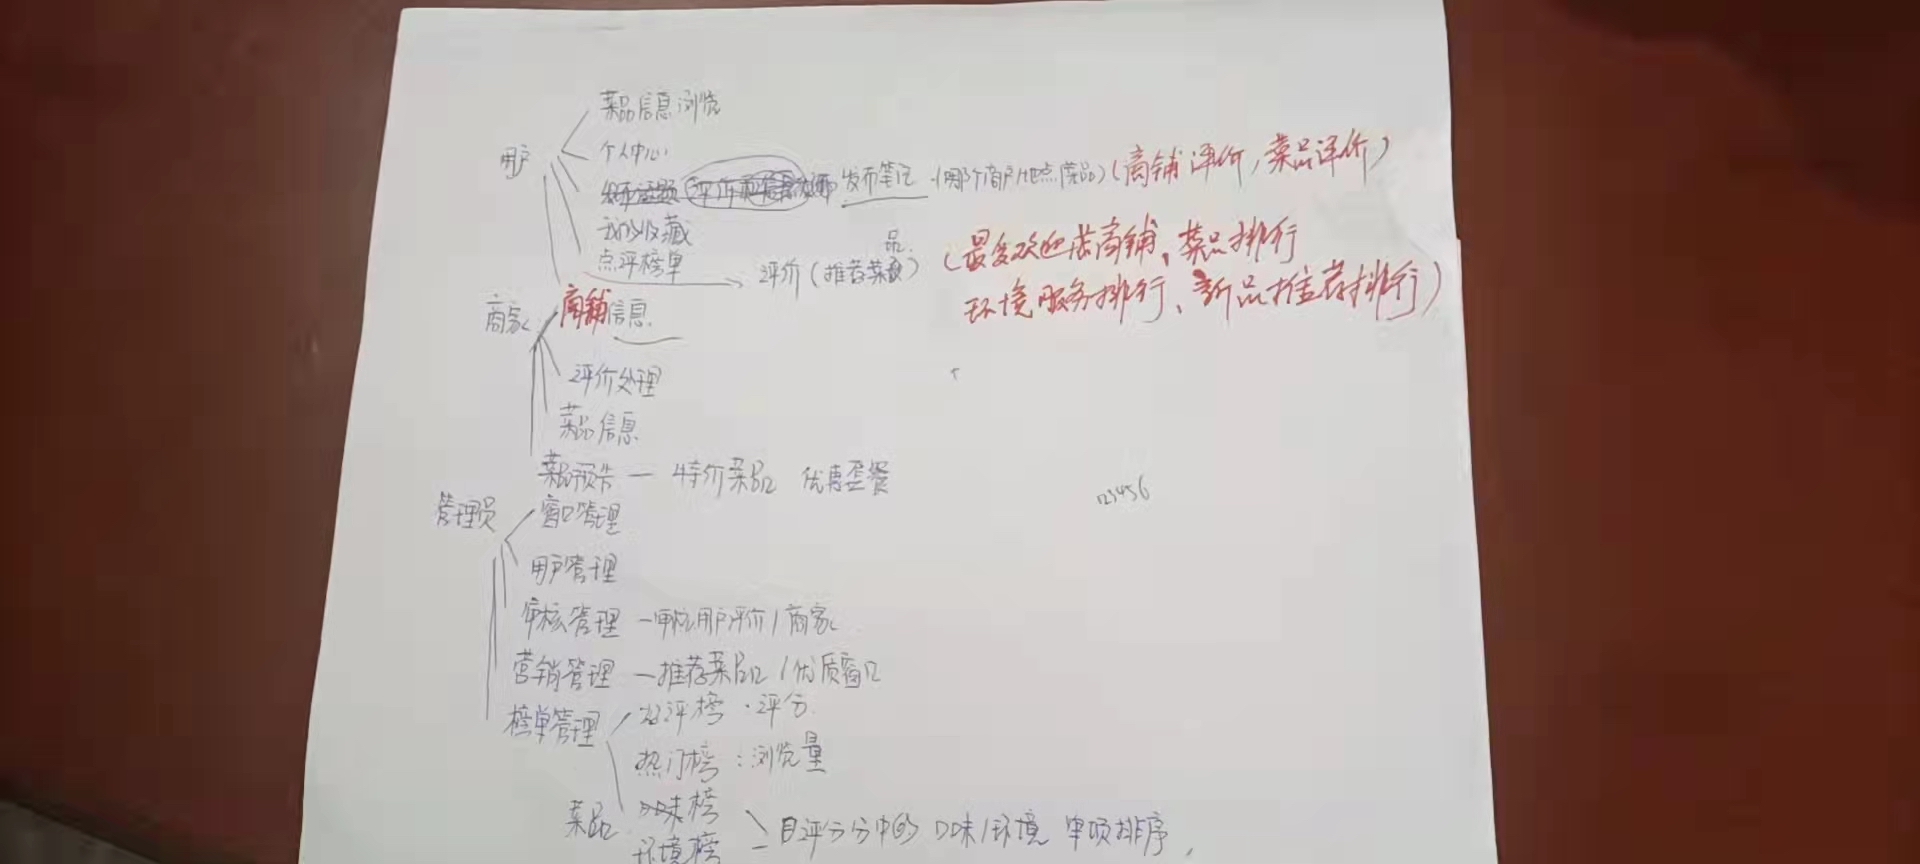 菜品信息浏览
用户
个人中心
发布笔记 (哪个商户/地点/菜品) (商铺评价,菜品评价)
我的收藏
点评榜单
评价 (推荐菜品)
(最受欢迎店商铺、菜品排行
环境服务排行、新品推荐排行)
商家
商铺信息
评价处理
菜品信息
菜品预告 — 特价菜品 优惠套餐
123456
管理员
窗口管理
用户管理
审核管理 — 审核用户评价/商家
营销管理 — 推荐菜品/优质窗口
榜单管理
好评榜 · 评分
热门榜 : 浏览量
菜品
口味榜
环境榜
评分中的 口味/环境 单项排序